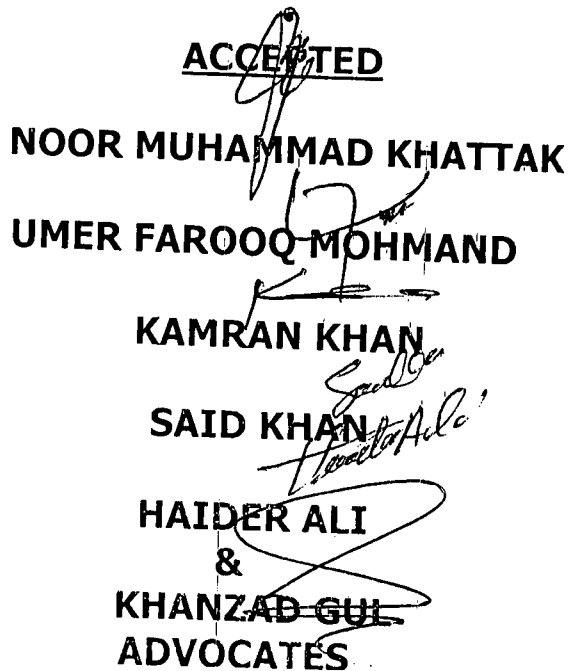 ACCEPTED
NOOR MUHAMMAD KHATTAK
UMER FAROOQ MOHMAND
KAMRAN KHAN
SAID KHAN
HAIDER ALI
&
KHANZAD GUL
ADVOCATES